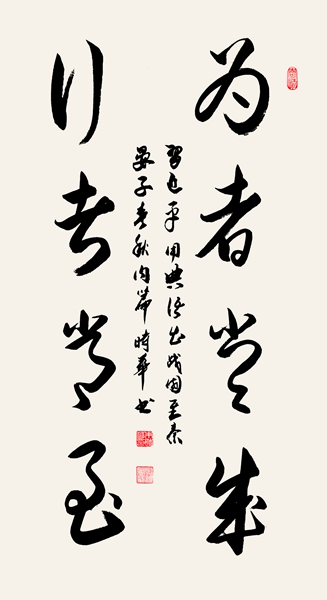 为者常成
行者常至
习近平用典语出战国至秦
晏子春秋内篇時華书